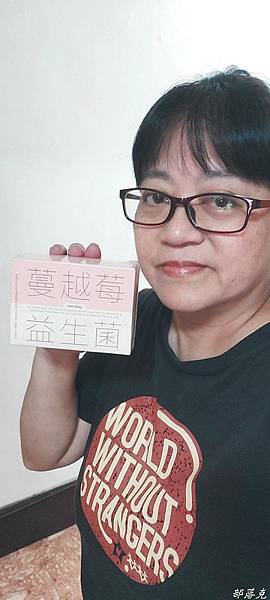 蔓越莓
益生菌
WORLD
WITHOUT
STRANGERS
部落克